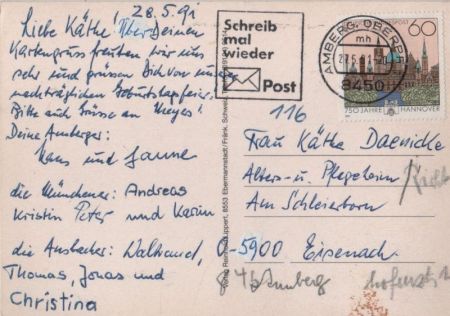 28.5.91
Liebe Käthe! Über Deinen
Kartengruss freuten wir uns
sehr und grüssen Dich von unserer
nachträglichen Geburtstagsfeier.
Bitte auch Grüsse an Meyes!
Deine Amberger:
Hans und Janne
die Münchener: Andreas
Kristin Peter und Karin
die Ansbacher: Waltraud,
Thomas, Jonas und
Christina
Schreib
mal
wieder
Post
AMBERG, OBERPF
mh
27.5.91
8450
POST 60
750 JAHRE HANNOVER
116
Frau Käthe Daenicke
Alters- u. Pflegeheim
Am Schleierborn
O-5900 Eisenach
Amberg